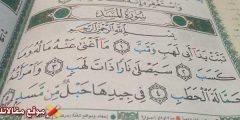 سُورَةُ المَسَد
بِسْمِ اللَّهِ الرَّحْمَٰنِ الرَّحِيمِ
تَبَّتْ يَدَا أَبِي لَهَبٍ وَتَبَّ ١ مَا أَغْنَىٰ عَنْهُ مَالُهُ وَمَا
كَسَبَ ٢ سَيَصْلَىٰ نَارًا ذَاتَ لَهَبٍ ٣ وَامْرَأَتُهُ
حَمَّالَةَ الْحَطَبِ ٤ فِي جِيدِهَا حَبْلٌ مِّن مَّسَدٍ ٥
موقع مقالاتك